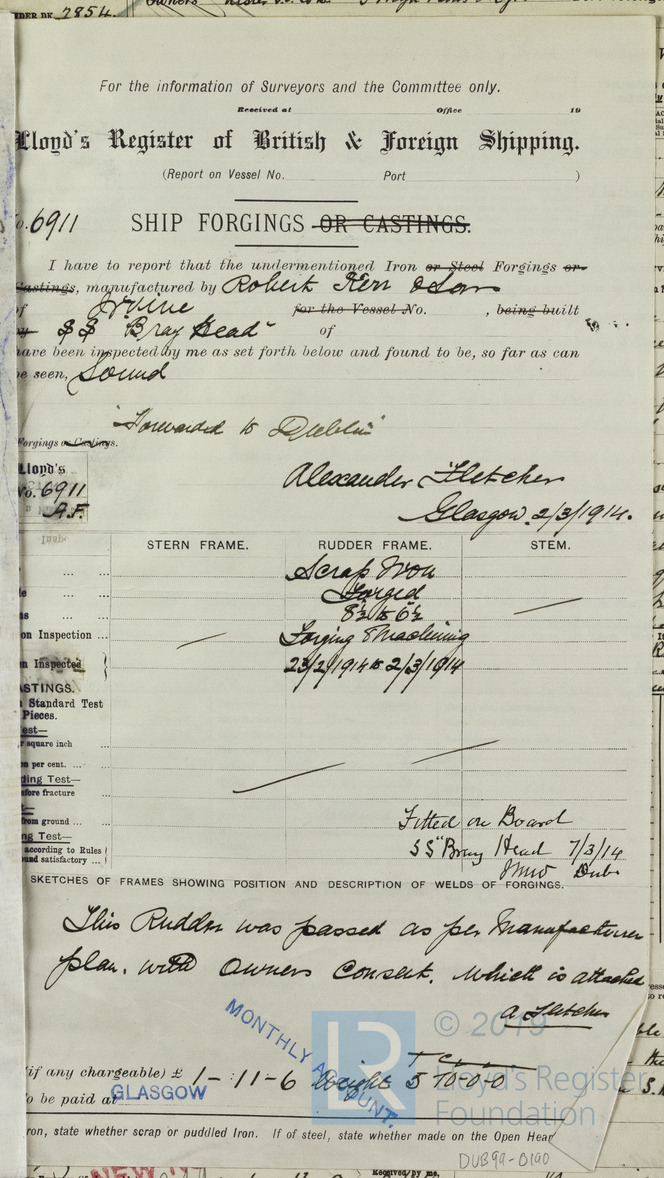 2854.
For the information of Surveyors and the Committee only.
Received at Office 19
Lloyd's Register of British & Foreign Shipping.
(Report on Vessel No. Port )
No. 6911 SHIP FORGINGS OR CASTINGS.
I have to report that the undermentioned Iron or Steel Forgings or
Castings, manufactured by Robert Kerr & Son
of Irvine for the Vessel No. , being built
by SS "Bray Head" of
have been inspected by me as set forth below and found to be, so far as can
be seen, Sound
"Forwarded to Dublin"
Forgings or Castings.
Lloyd's
No. 6911
A.F.
Alexander Fletcher
Glasgow. 2/3/1914.
STERN FRAME. RUDDER FRAME. STEM.
Scrap Iron
Forged
8½ to 6½
on Inspection ... Forging & Machining
Inspected 23/2/1914 to 2/3/1914
CASTINGS.
Standard Test
Pieces.
est—
square inch
per cent. ...
ding Test—
fore fracture
from ground ...
ng Test—
according to Rules
and satisfactory ...
Fitted on Board
SS "Bray Head 7/3/14
Dub
SKETCHES OF FRAMES SHOWING POSITION AND DESCRIPTION OF WELDS OF FORGINGS.
This Rudder was passed as per Manufacturer
plan. with Owners Consent. which is attached
A Fletcher
MONTHLY ACCOUNT.
© 2019
Lloyd's Register
Foundation
LR
(if any chargeable) £ 1-:11-6 Weight 5 10-0-0
to be paid at GLASGOW
iron, state whether scrap or puddled Iron. If of steel, state whether made on the Open Hear
DUB99-0190
Received by me,